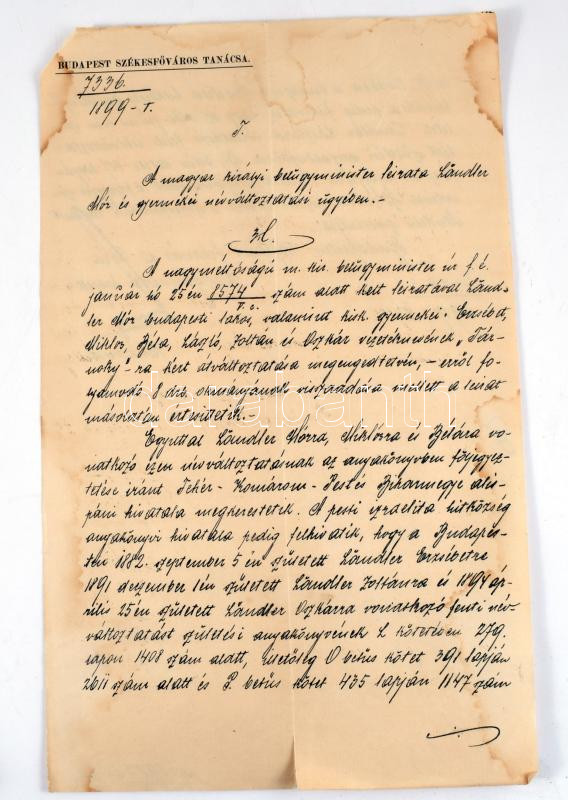 BUDAPEST SZÉKESFŐVÁROS TANÁCSA.
7336.
1899 - I.
T.
A magyar királyi belügyminister leirata Ländler
Mór és gyermekei névváltoztatási ügyében.-
A nagyméltóságú m. kir. belügyminister úr f. é.
január hó 25én 8574 szám alatt kelt leiratával Länd-
ler Mór budapesti lakos, valamint kisk. gyermekei: Erzsébet,
Miklós, Béla, László, Zoltán és Oszkár vezetéknevének „Tár-
noky"-ra kért átváltoztatása megengedtetvén, - erről fo-
lyamodó 8 drb okmányának visszaadása mellett a leirat
másolatán értesittetik.
Egyúttal Ländler Mórra, Miklósra és Bélára vo-
natkozó ezen névváltoztatásnak az anyakönyvben följegyez-
tetése iránt Fehér- Komárom- Pest és Biharmegye alis-
páni hivatala megkerestetik. A pesti izraelita hitközség
anyakönyvi hivatala pedig felhivatik, hogy a Budapes-
ten 1882. september 5én született Ländler Erzsébetre
1891 dezember 1én született Ländler Zoltánra és 1894 áp-
rilis 25én született Ländler Oszkárra vonatkozó fenti név-
változtatást születési anyakönyvének L kötetében 279.
lapon 1408 szám alatt, illetőleg O betűs kötet 391 lapján
2611 szám alatt és P. betűs kötet 435 lapján 1147 szám
darabanth